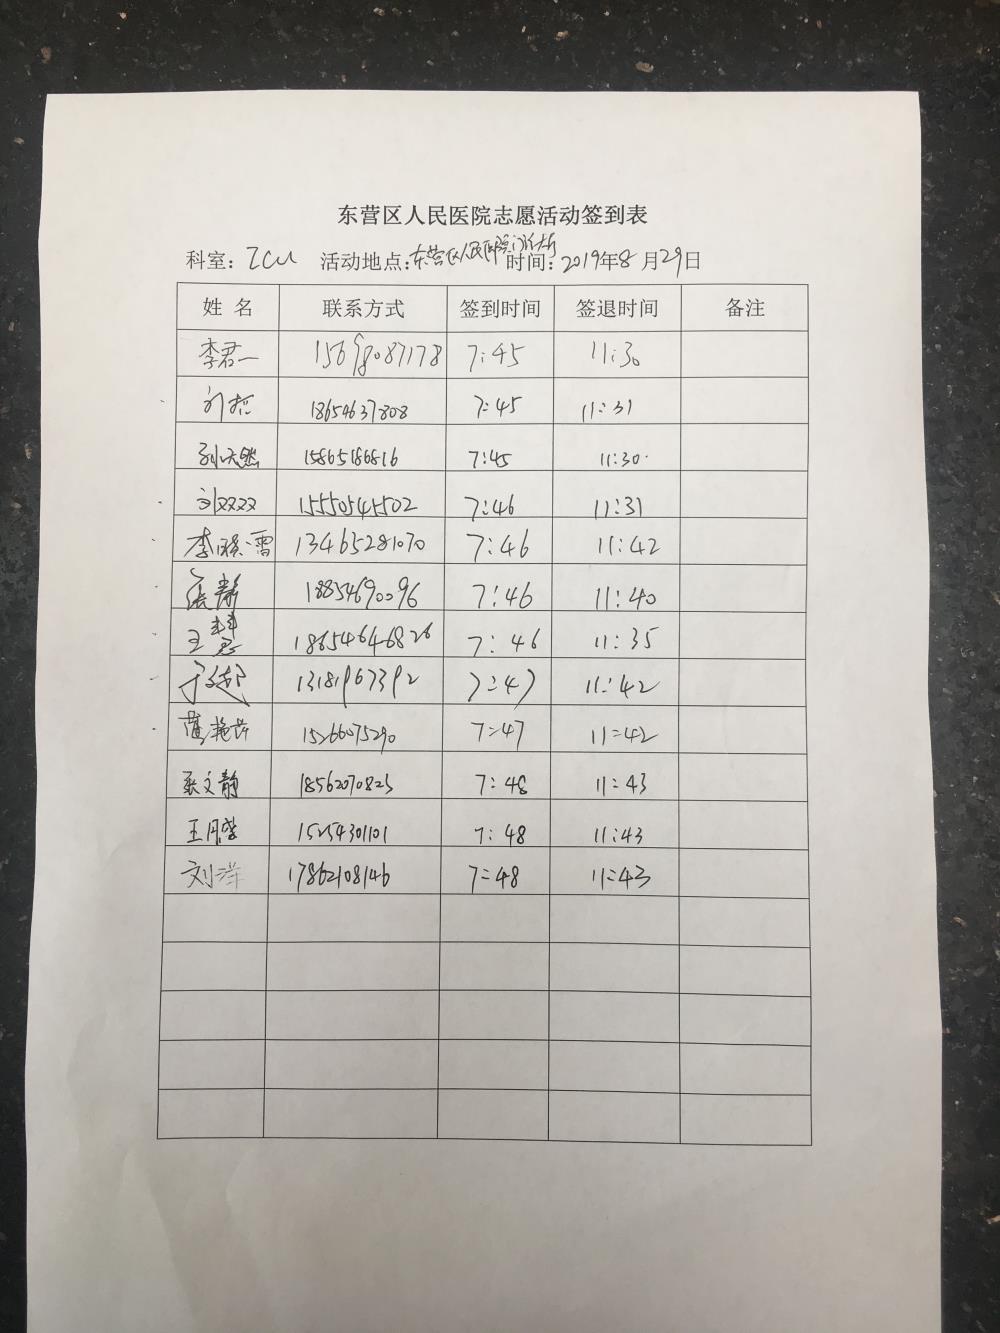 东营区人民医院志愿活动签到表
科室：ICU 活动地点：东营区人民医院门诊 时间：2019年8月29日
姓 名 联系方式 签到时间 签退时间 备注
李君一 15698087178 7:45 11:30
刘 18654637808 7:45 11:31
孙天然 15865186816 7:45 11:30
刘双双 15550545502 7:46 11:31
李晓雪 13465281070 7:46 11:42
张静 18854690096 7:46 11:40
王慧 18654646826 7:46 11:35
于 13181967392 7:47 11:42
艳 15266075290 7:47 11:42
张文静 18562070825 7:48 11:43
王月莹 15254301101 7:48 11:43
刘洋 17862108146 7:48 11:43